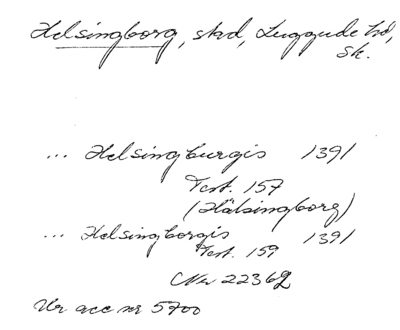 Helsingborg, stad, Luggude hd,
Sk.
... Helsingburgis 1391
Test. 157
(Hälsingborg)
... Helsingborgis 1391
Test. 159
Nr 22362
Ur acc nr 5700